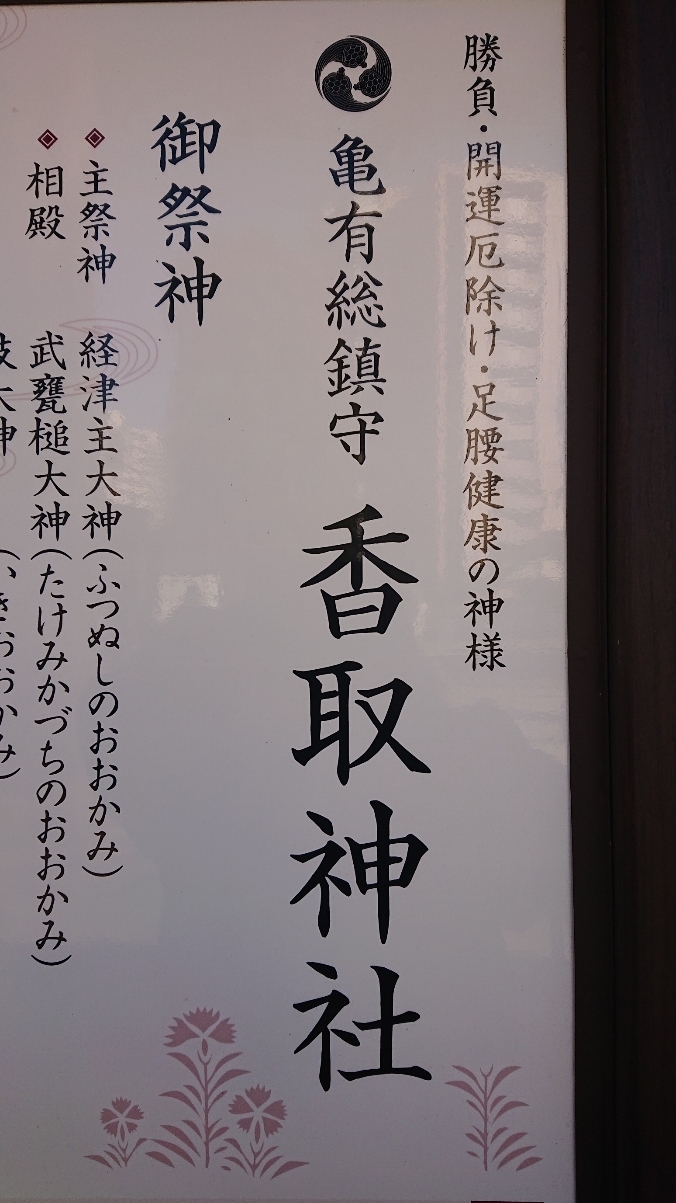 勝負・開運厄除け・足腰健康の神様
亀有総鎮守 香取神社
御祭神
主祭神 経津主大神(ふつぬしのおおかみ)
相殿 武甕槌大神(たけみかづちのおおかみ)